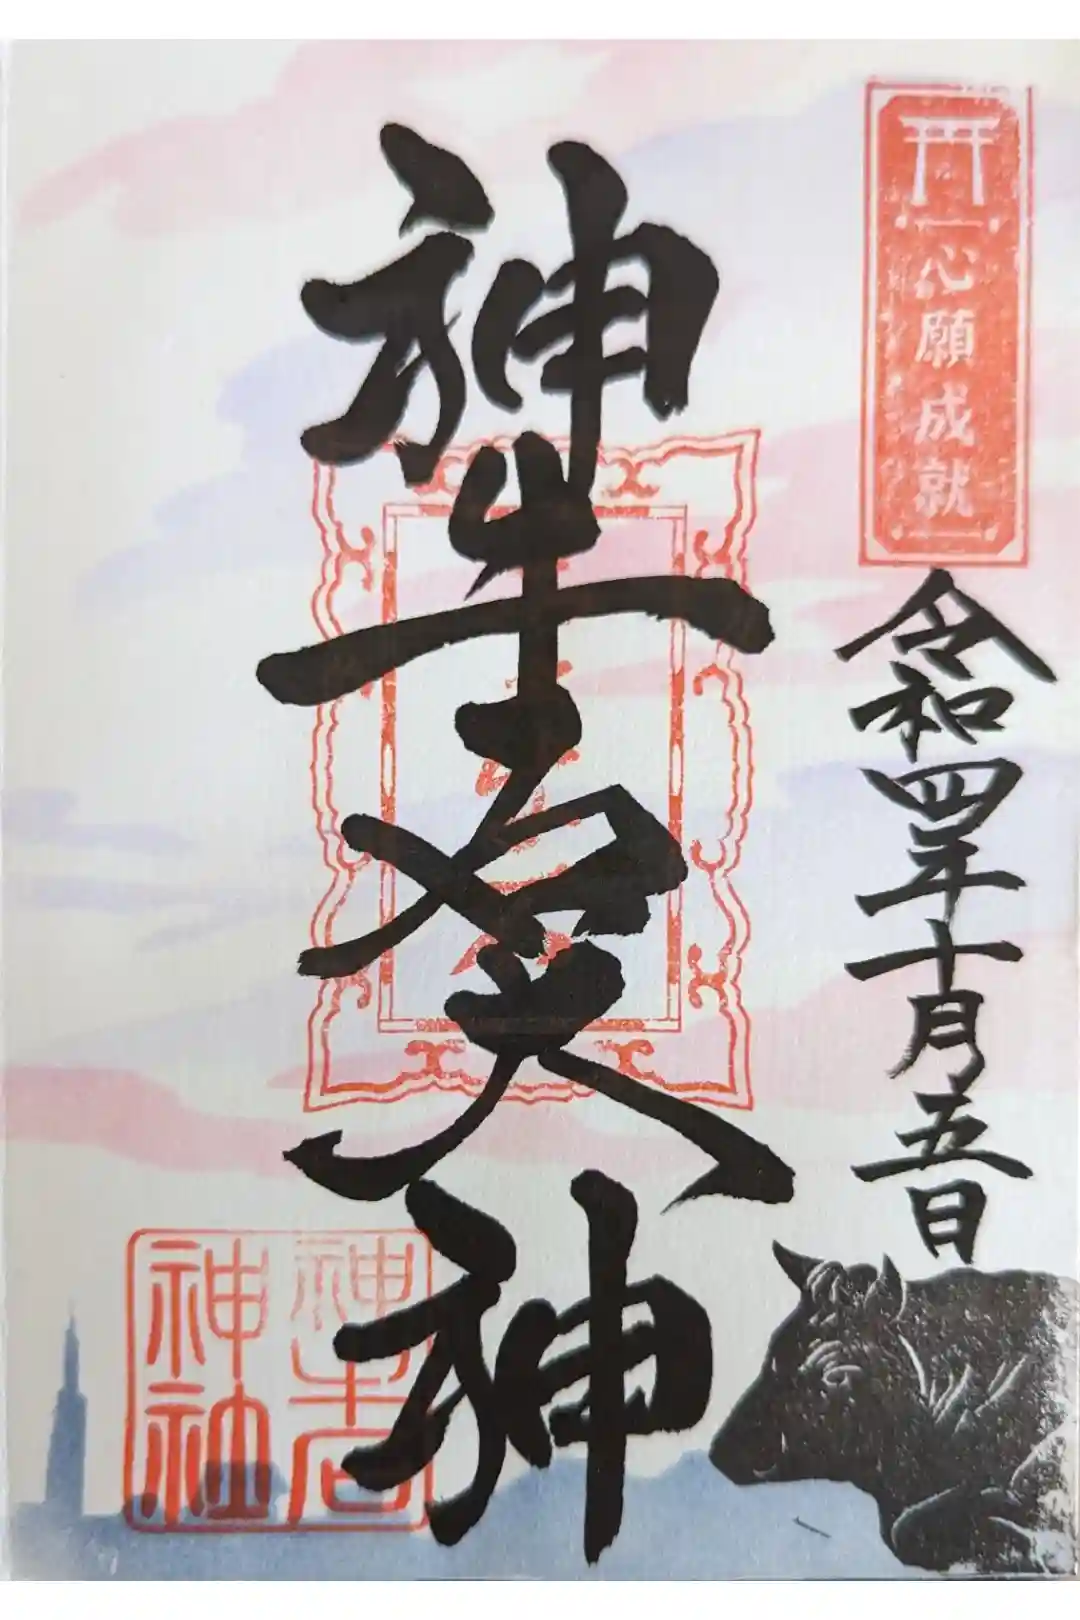 心願成就
令和四年十月五日
神牛石大神
神牛石
神社